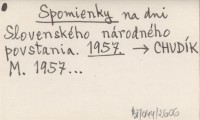 Spomienky na dni
Slovenského národného
povstania. 1957. → CHUDÍK
M. 1957...